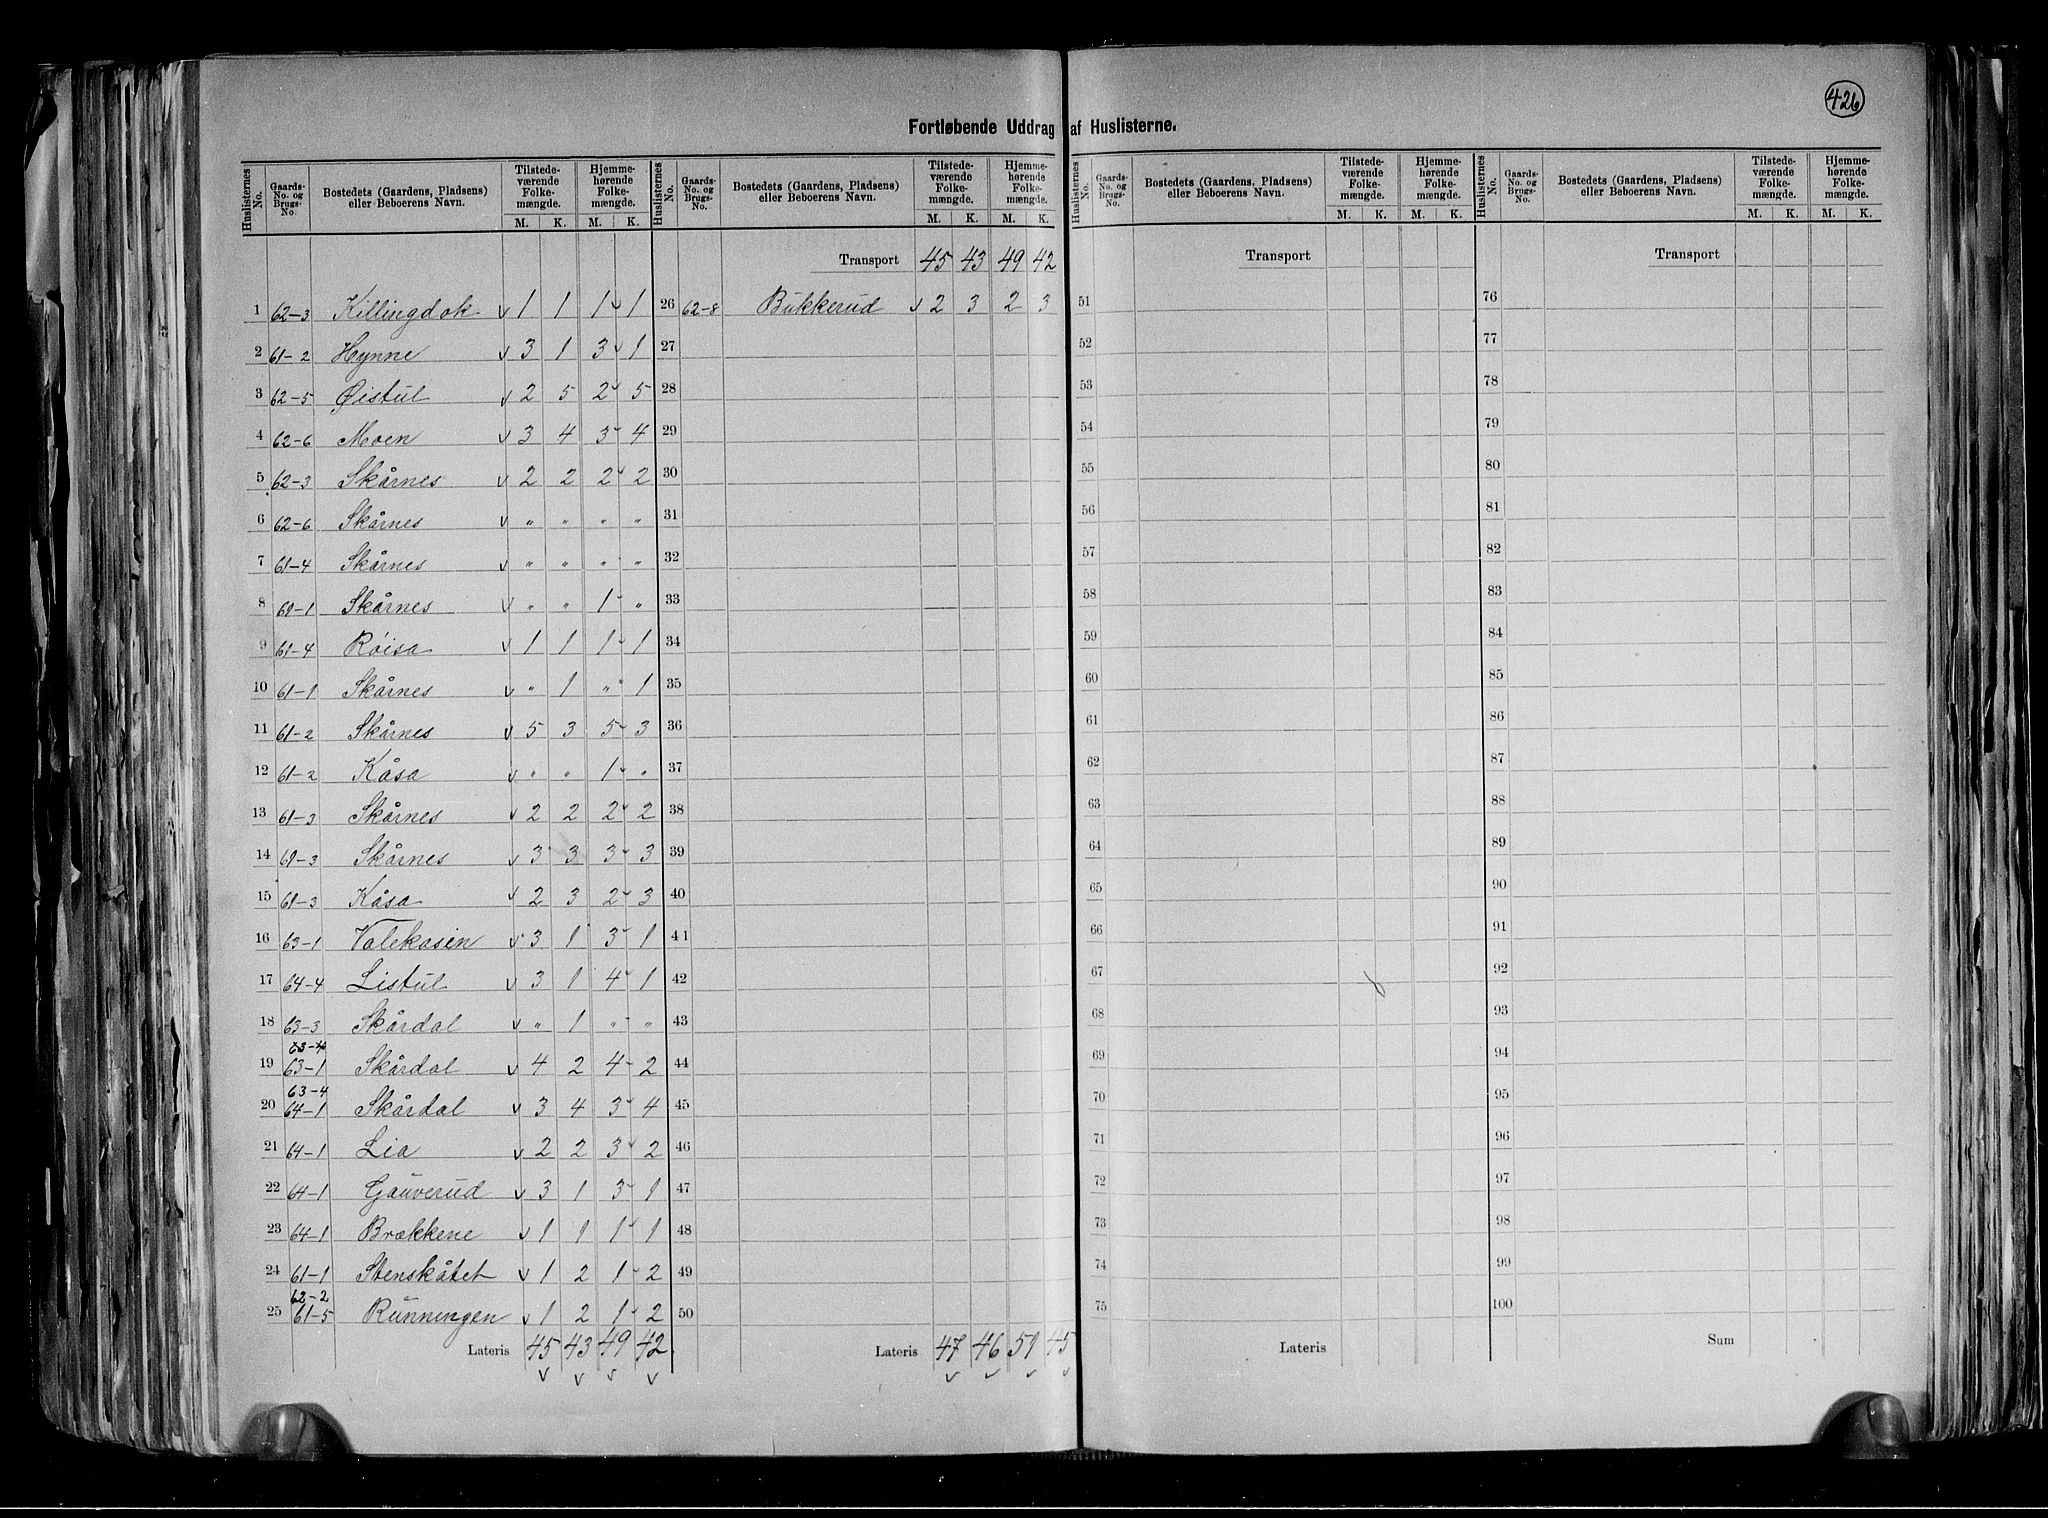 426
Fortløbende Uddrag af Huslisterne.
Huslisternes No. Gaards-No. og Brugs-No. Bostedets (Gaardens, Pladsens) eller Beboerens Navn. Tilstedeværende Folkemængde. M. K. Hjemmehørende Folkemængde. M. K.
1 62-3 Killingdok v 1 1 1 1
2 61-2 Hynne v 3 1 3 1
3 62-5 Øistul v 2 5 2 5
4 62-6 Moen v 3 4 3 4
5 62-3 Skårnes v 2 2 2 2
6 62-6 Skårnes v " " " "
7 61-4 Skårnes v " " " "
8 61-1 Skårnes v " " 1 "
9 61-4 Røisa v 1 1 1 1
10 61-1 Skårnes v " 1 " 1
11 61-2 Skårnes v 5 3 5 3
12 61-2 Kåsa v " " 1 "
13 61-3 Skårnes v 2 2 2 2
14 61-3 Skårnes v 3 3 3 3
15 61-3 Kåsa v 2 3 2 3
16 63-1 Valekasin v 3 1 3 1
17 64-4 Listul v 3 1 4 1
18 63-3 Skårdal v " 1 " "
63-4
19 63-1 Skårdal v 4 2 4 2
63-4
20 64-1 Skårdal v 3 4 3 4
21 64-1 Lia v 2 2 3 2
22 64-1 Gauverud v 3 1 3 1
23 64-1 Brækkene v 1 1 1 1
24 61-1 Stenskåtet v 1 2 1 2
62-2
25 61-5 Runningen v 1 2 1 2
Lateris 45 43 49 42
v v v v
Huslisternes No. Gaards-No. og Brugs-No. Bostedets (Gaardens, Pladsens) eller Beboerens Navn. Tilstedeværende Folkemængde. M. K. Hjemmehørende Folkemængde. M. K.
Transport 45 43 49 42
26 62-8 Bukkerud v 2 3 2 3
27
28
29
30
31
32
33
34
35
36
37
38
39
40
41
42
43
44
45
46
47
48
49
50
Lateris 47 46 51 45
v v v v
Huslisternes No. Gaards-No. og Brugs-No. Bostedets (Gaardens, Pladsens) eller Beboerens Navn. Tilstedeværende Folkemængde. M. K. Hjemmehørende Folkemængde. M. K.
Transport
51
52
53
54
55
56
57
58
59
60
61
62
63
64
65
66
67
68
69
70
71
72
73
74
75
Lateris
Huslisternes No. Gaards-No. og Brugs-No. Bostedets (Gaardens, Pladsens) eller Beboerens Navn. Tilstedeværende Folkemængde. M. K. Hjemmehørende Folkemængde. M. K.
Transport
76
77
78
79
80
81
82
83
84
85
86
87
88
89
90
91
92
93
94
95
96
97
98
99
100
Sum